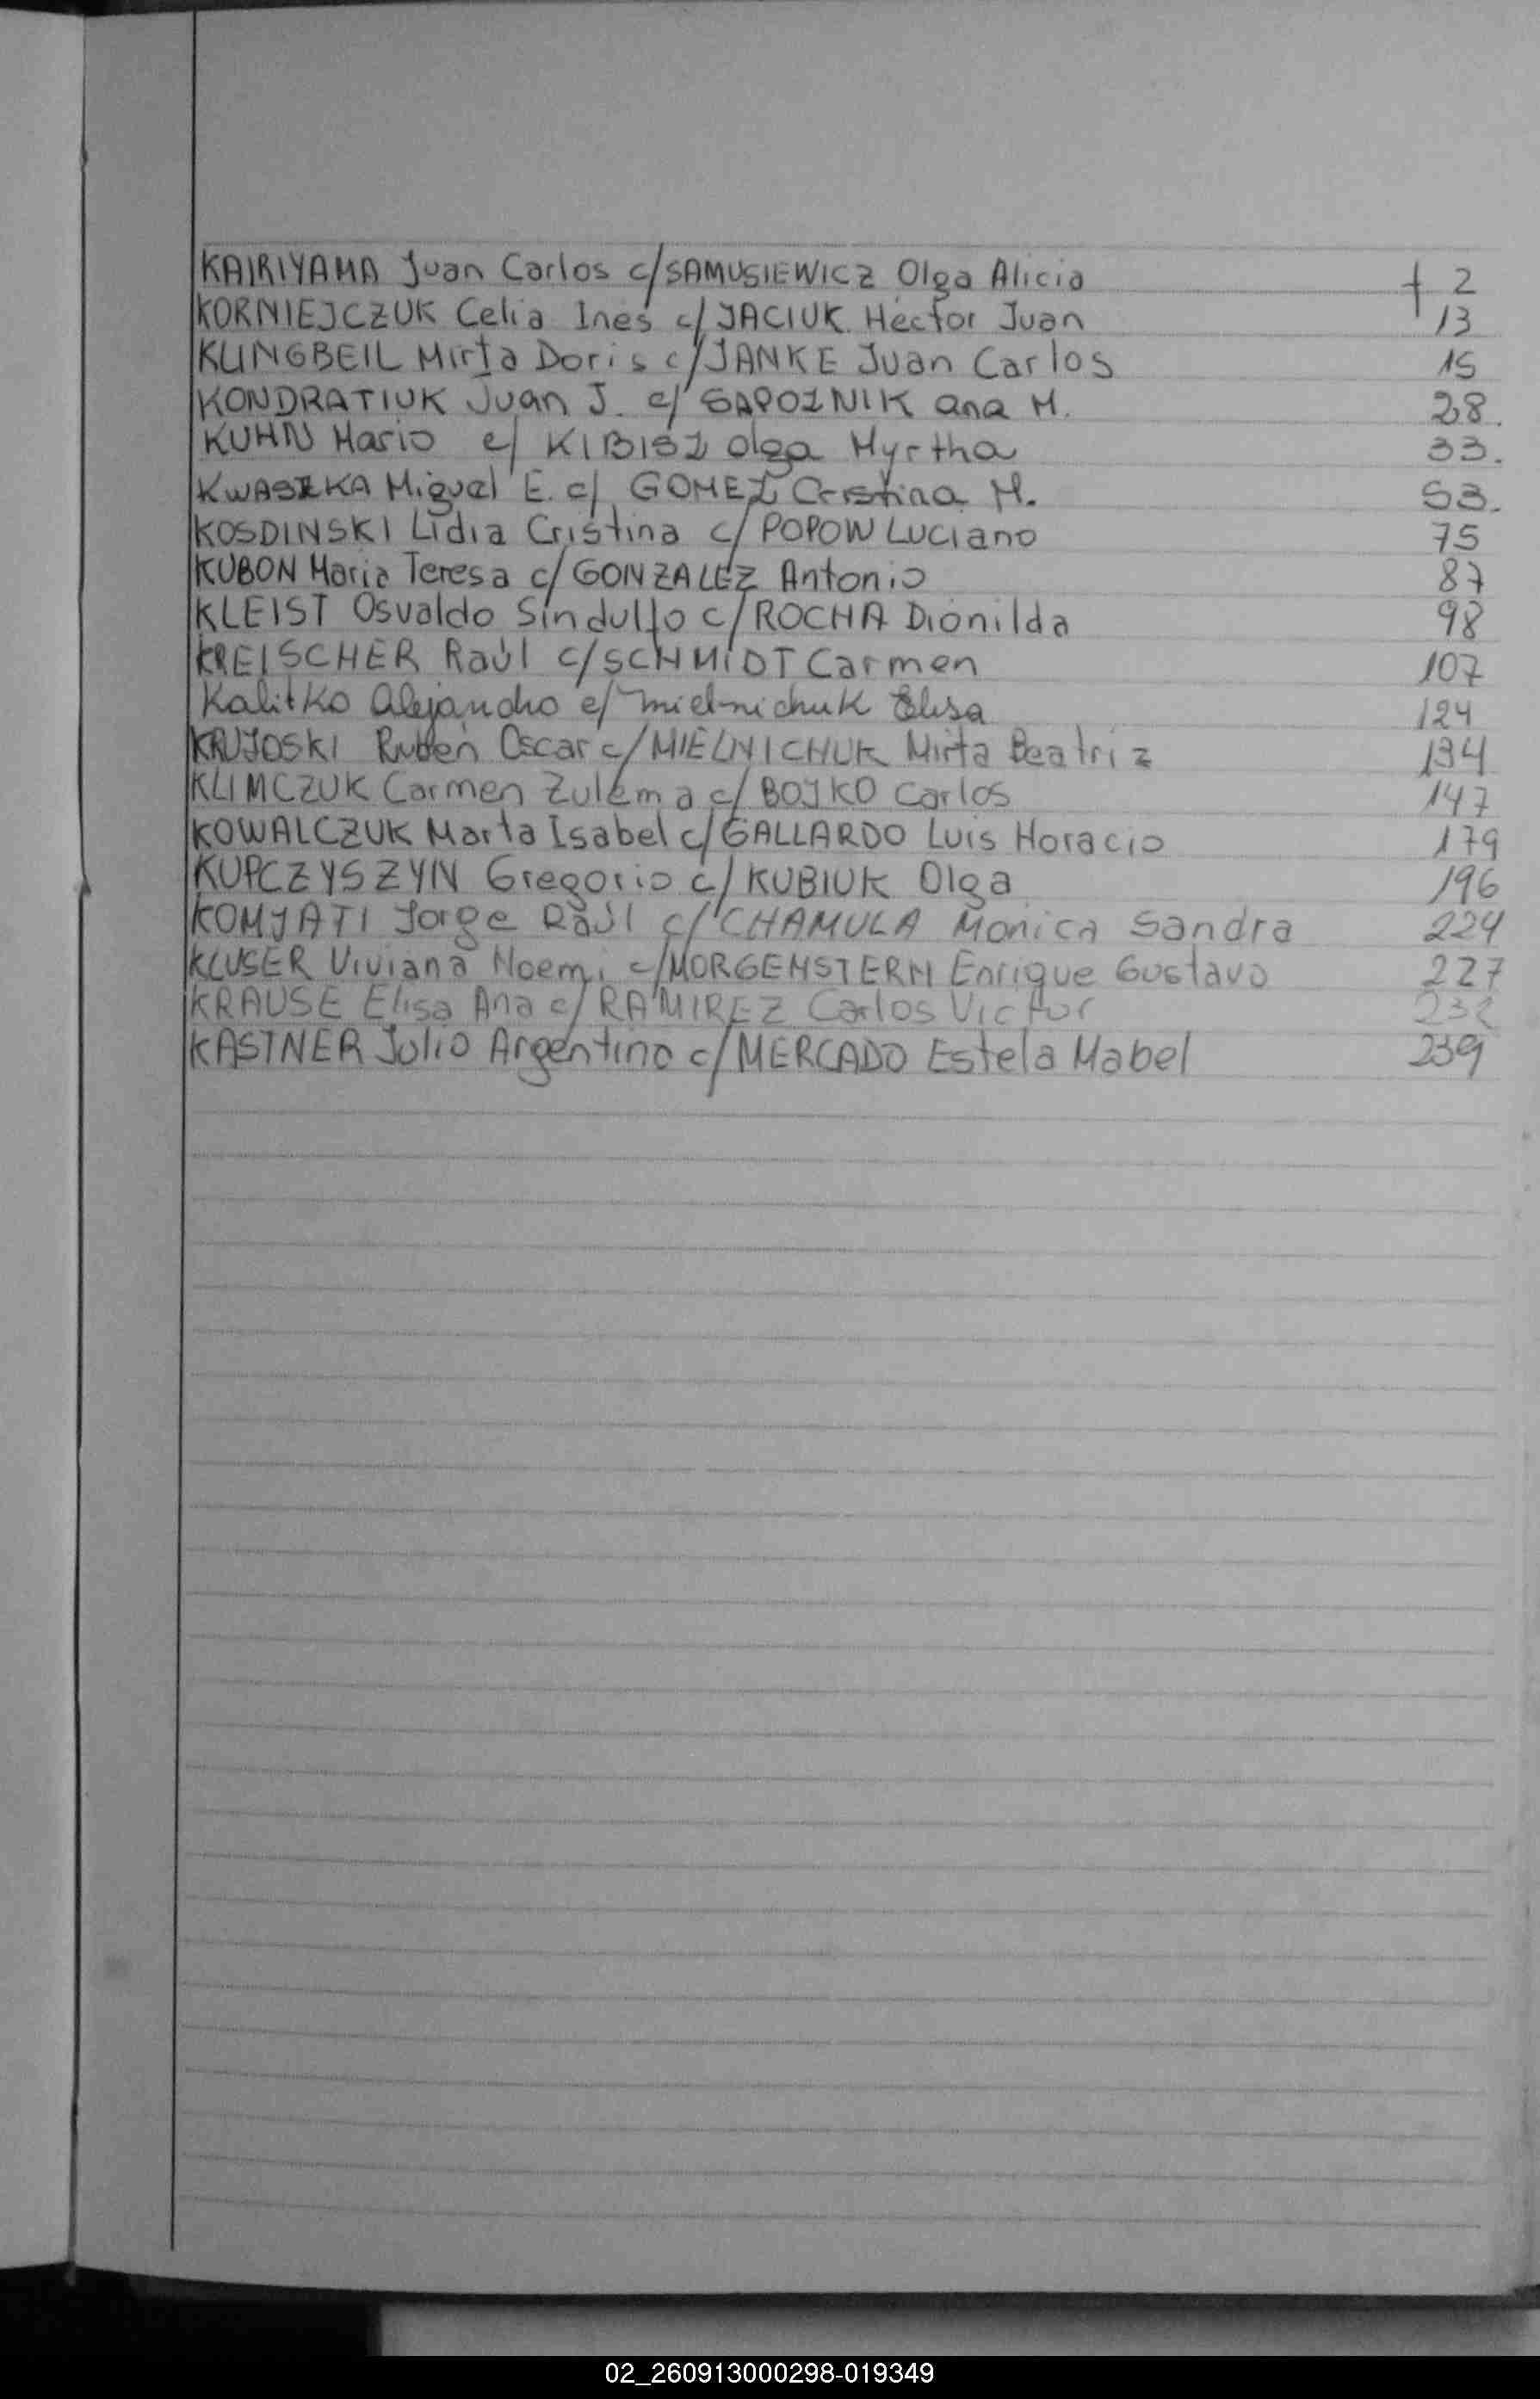 KAIRIYAMA Juan Carlos c/SAMUSIEWICZ Olga Alicia f 2
KORNIEJCZUK Celia Ines c/JACIUK Hector Juan 13
KLINGBEIL Mirta Doris c/JANKE Juan Carlos 15
KONDRATIUK Juan J. c/ SAPOZNIK Ana M. 28.
KUHN Mario c/ KIBISZ Olga Myrtha 33.
KWASZKA Miguel E. c/ GOMEZ Cristina M. 53.
KOSDINSKI Lidia Cristina c/ POPOW Luciano 75
KUBON Maria Teresa c/ GONZALEZ Antonio 87
KLEIST Osvaldo Sindulfo c/ROCHA Dionilda 98
KREISCHER Raúl c/SCHMIDT Carmen 107
Kalitko Alejandro c/ Mielnichuk Elisa 124
KRUJOSKI Ruben Oscar c/MIELNICHUK Mirta Beatriz 134
KLIMCZUK Carmen Zulema c/ BOJKO Carlos 147
KOWALCZUK Marta Isabel c/GALLARDO Luis Horacio 179
KUPCZYSZYN Gregorio c/ KUBIUK Olga 196
KOMJATI Jorge Raúl c/ CHAMULA Monica Sandra 224
KLUSER Viviana Noemi c/MORGENSTERN Enrique Gustavo 227
KRAUSE Elisa Ana c/ RAMIREZ Carlos Victor
KASTNER Julio Argentino c/MERCADO Estela Mabel 239
02_260913000298-019349